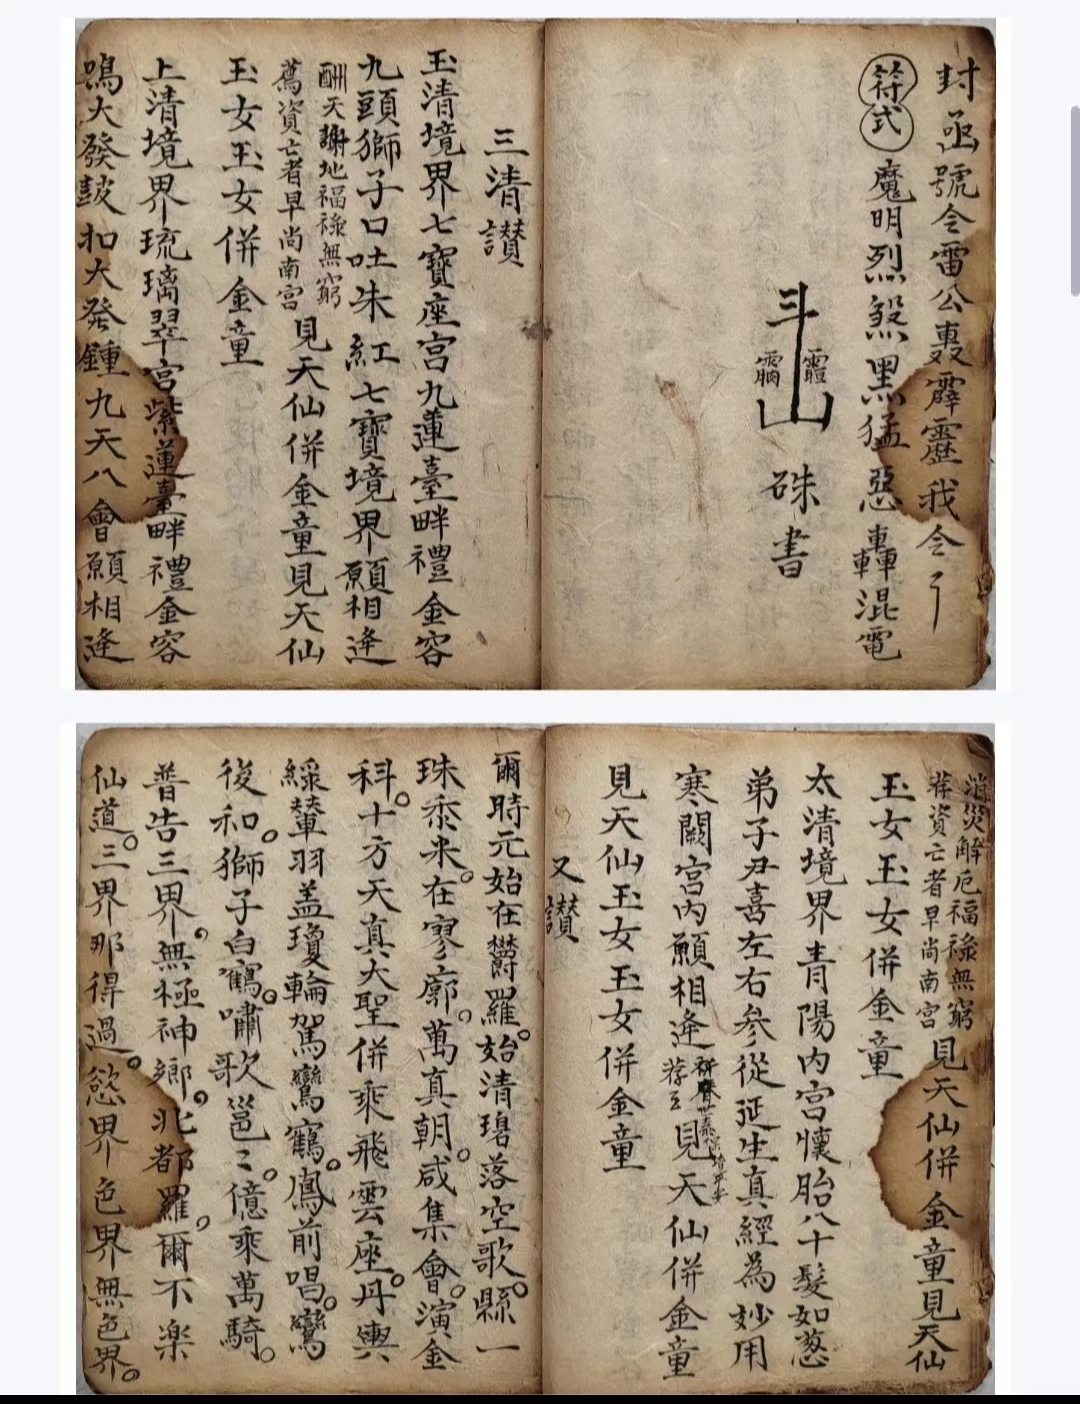 封函號令雷公轟霹靂我令行
符式
魔明烈煞黑猛惡轟混電
斗
山
硃書
三清讃
玉清境界七寶座宮九蓮臺畔禮金容
九頭獅子口吐朱紅七寶境界願相逢
酬天謝地福祿無窮
薦資亡者早尚南宮
見天仙併金童見天仙
玉女玉女併金童
上清境界琉璃翠宮紫蓮臺畔禮金容
鳴大發鼓扣大発鍾九天八會願相逢
消災解厄福祿無窮
荐資亡者早尚南宮
見天仙併金童見天仙
玉女玉女併金童
太清境界青陽內宮懷胎八十髮如葱
弟子尹喜左右參從延生真經為妙用
寒闕宮內願相逢
見天仙併金童
見天仙玉女玉女併金童
又讃
爾時元始在欝羅。始清琩落空歌。縣一
珠黍米。在寥廓。萬真朝。咸集會。演金
科。十方天真大聖併乘飛雲座。丹輿
綵輦羽盖瓊輪駕鸞鶴。鳳前唱。鸞
後和。獅子白鶴。嘯歌邕〻。億乘萬騎。
普告三界。無極神鄉。北都羅。爾不楽
仙道。三界那得過。慾界色界無色界。